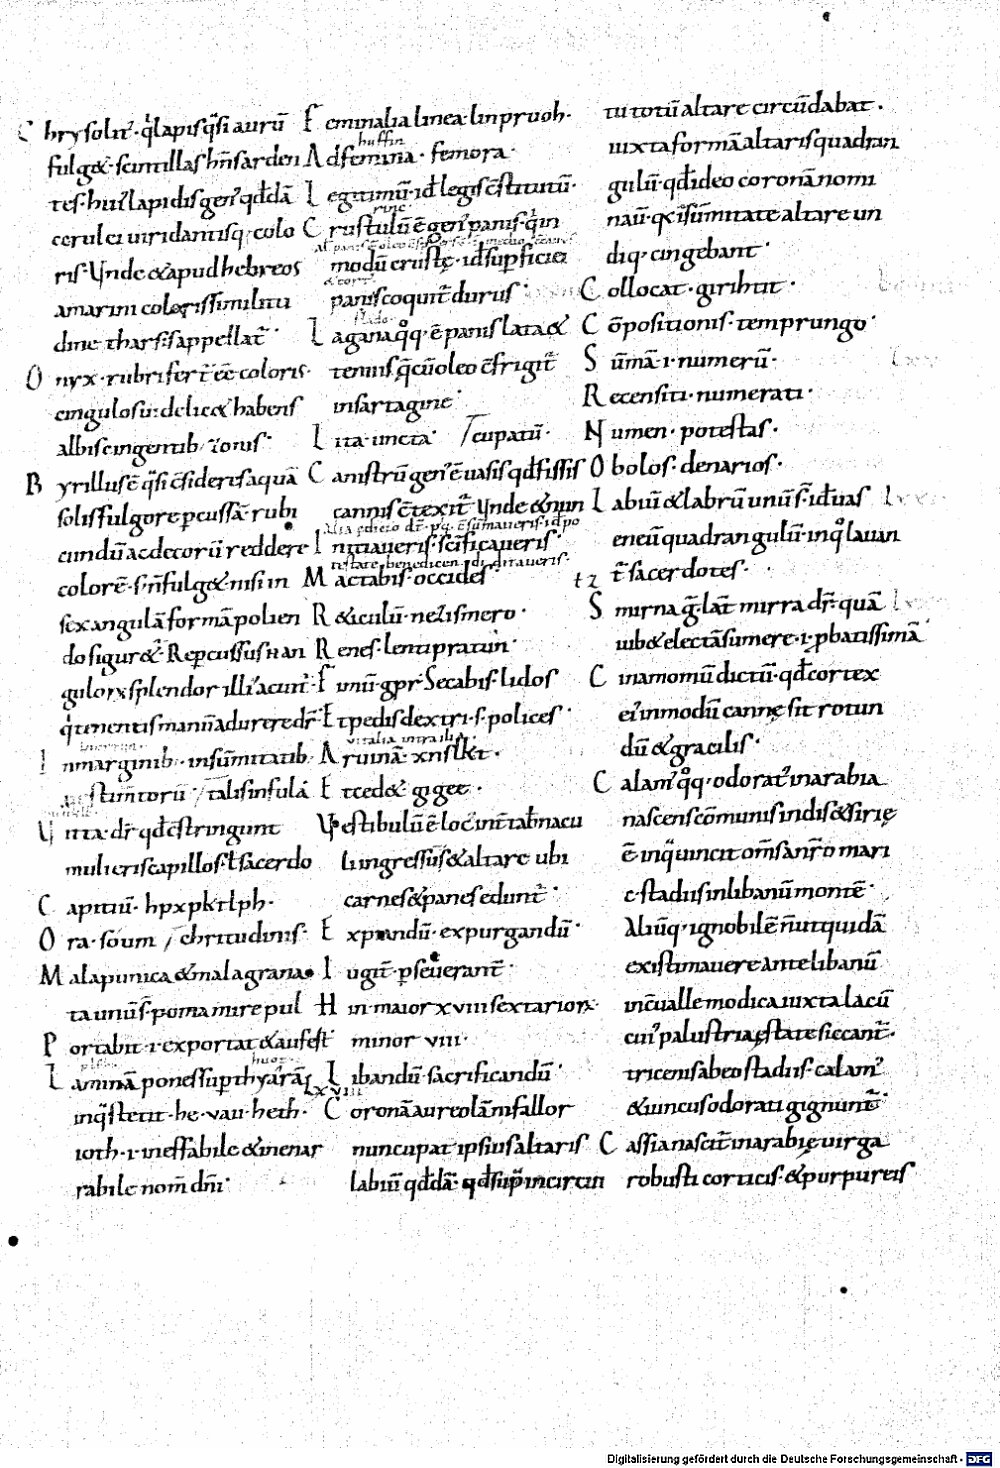 Chrysolit᷒ · q̇ lapis q̄si aurū
fulg& · scintillas hn̄s arden
tes · hui᷒ lapidis gen᷒ qddā
cerulei uiridantisq; colo
ris · Vnde & apud hebreos
amarini coloris similitu
dine tharsis appellat᷑ ·
Onyx · rubri fert᷑ eē coloris ·
cingulos u: delic& habens
albis cingentib; ionis ·
Byrillus ē q̄si c̄sideres aquā
solis fulgore ꝑcussā · rubi
cundū ac decorū reddere
colorē · s; n̄ fulg& nisi in
sexangulā formā polien
do figur& · Reꝑcussus nan
guloꝝ splendor illi᷒ acuit᷑ ·
q̇ tenentis manū adurere dr̄ ·
Inmarginib; · in sūmitatib;
stim torū / talis insula
Vitta · dr̄ qd c̄stringunt
mulieris capillos · ł sacerdo
Capitiū · hpxpktlph ·
Ora · soum / chritudinis ·
Mala punica & malagrana
ta unū s · poma mire pul
Portabit · i · exportat & aufert
Laminā pones sup̄ thyarā
inq̄ stetit · he · vau · heth ·
ioth · i · ineffabile & inenar
rabile nom̄ dn̄i ·
Feminalia linea · linpruoh ·
huffin
Ad femina · femora ·
Legitimū · id legis c̄stitutū ·
rinc
Crustulū ē gen᷒ panis · q̇ in
modū crustę · id sup̄ficiei
panis coquit᷑ durus ·
flado
Lagana q̊q; ē panis lata &
tenuis q̄ cū oleo c̄frigit᷑
in sartagine ·
Lita · uncta · / cupatū ·
Canistrū gen᷒ ē uasis qd fissis
cannis c̄texit᷑ Vnde & nun
Initiaueris · sc̄ificaueris ·
Mactabis · occides ·
R&iculū · nezismero ·
Renes · lentipratun ·
Fimū · gor · Secabis · lidos
Et pedis dextri · s · polices ·
vitalia intralia
Aruinā · xnslkt ·
Et ced& · gigee ·
Vestibulū ē loc᷒ int᷑ tab̄nacu
li ingressus & altare ubi
carnes & panes edunt᷑ ·
Expiandū · expurgandū ·
Iugit᷑ · ꝑseuerant᷑ ·
Hin maior xviii sextarioꝝ ·
minor viii ·
Libandū · sacrificandū ·
Coronā aureolā infallor
nuncupat ipsius altaris
labiū qddā · qd sup̄ in circui
tu totū altare circūdabat ·
iuxta formā altaris quadran
gulū · qd ideo coronā nomi
nauı̄ · qa in sūmitate altare un
diq; cingebant ·
Collocat · girihtit ·
Cōpositionis · temprungo ·
Sūmā · i · numerū ·
Recensiti · numerati ·
Numen · potestas ·
Obolos · denarios ·
Labiū & labrū unū s · id uas
eneū quadrangulū · in q̊ lauan
t᷑ sacerdotes ·
Smirna g̅ · lat̄ mirra dr̄ · quā
iub& electā sumere · i · ꝓbatissimā
Cinamomū dictū · qd cortex
ei᷒ in modū cannę sit rotun
dū & gracilis ·
Calam᷒ q̊q; · odorat᷒ in arabia
nascens cōmunis indis & sirię
ē inq̄ uincit om̄s a nr̄o mari
c · stadiis in libanū montē ·
Aliūq; · ignobilē n̄ utquidā
existimauere antelibanū
in c̄ualle modica iuxta lacū
cui᷒ palustria ęstate siccant᷑ ·
tricenis abeo stadiis · calam᷒
& iuncus odorati gignunt᷑ ·
Cassia nascit᷑ in arabię uirga
robusti corticis · & purpureis
Digitalisierung gefördert durch die Deutsche Forschungsgemeinschaft - DFG